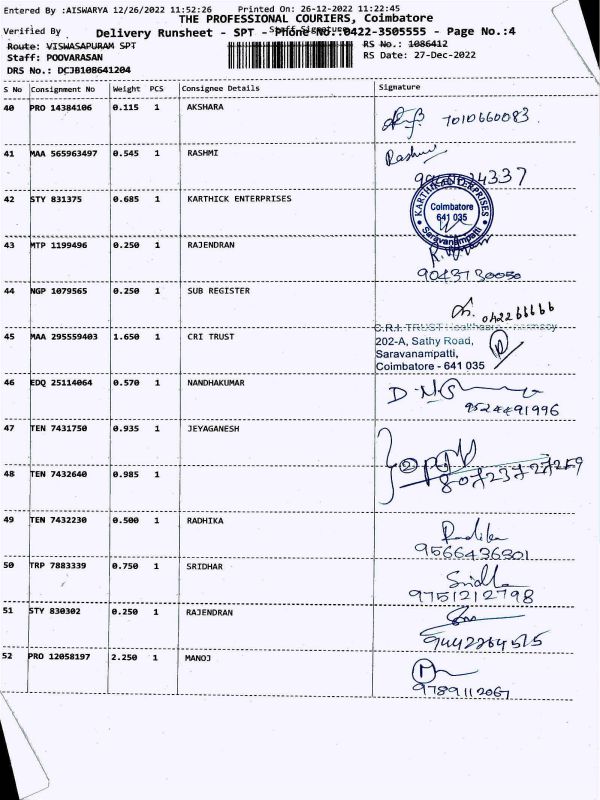 Entered By :AISWARYA 12/26/2022 11:52:26 Printed On: 26-12-2022 11:22:45
THE PROFESSIONAL COURIERS, Coimbatore
Verified By Staff Signature
Delivery Runsheet - SPT - Phone No.:0422-3505555 - Page No.:4
Route: VISWASAPURAM SPT RS No.: 1086412
Staff: POOVARASAN RS Date: 27-Dec-2022
DRS No.: DCJB108641204
S No Consignment No Weight PCS Consignee Details Signature
40 PRO 14384106 0.115 1 AKSHARA 7010660083
41 MAA 565963497 0.545 1 RASHMI Rashmi
42 STY 831375 0.685 1 KARTHICK ENTERPRISES
KARTHIK ENTERPRISES
Coimbatore
641 035
Saravanampatti
43 MTP 1199496 0.250 1 RAJENDRAN
44 NGP 1079565 0.250 1 SUB REGISTER
45 MAA 295559403 1.650 1 CRI TRUST
C.R.I. TRUST Healthcare Pharmacy
202-A, Sathy Road,
Saravanampatti,
Coimbatore - 641 035
46 EDQ 25114064 0.570 1 NANDHAKUMAR
9524491996
47 TEN 7431750 0.935 1 JEYAGANESH
48 TEN 7432640 0.985 1
49 TEN 7432230 0.500 1 RADHIKA Radhika
9566436301
50 TRP 7883339 0.750 1 SRIDHAR
9751212798
51 STY 830302 0.250 1 RAJENDRAN
52 PRO 12058197 2.250 1 MANOJ
9789112067